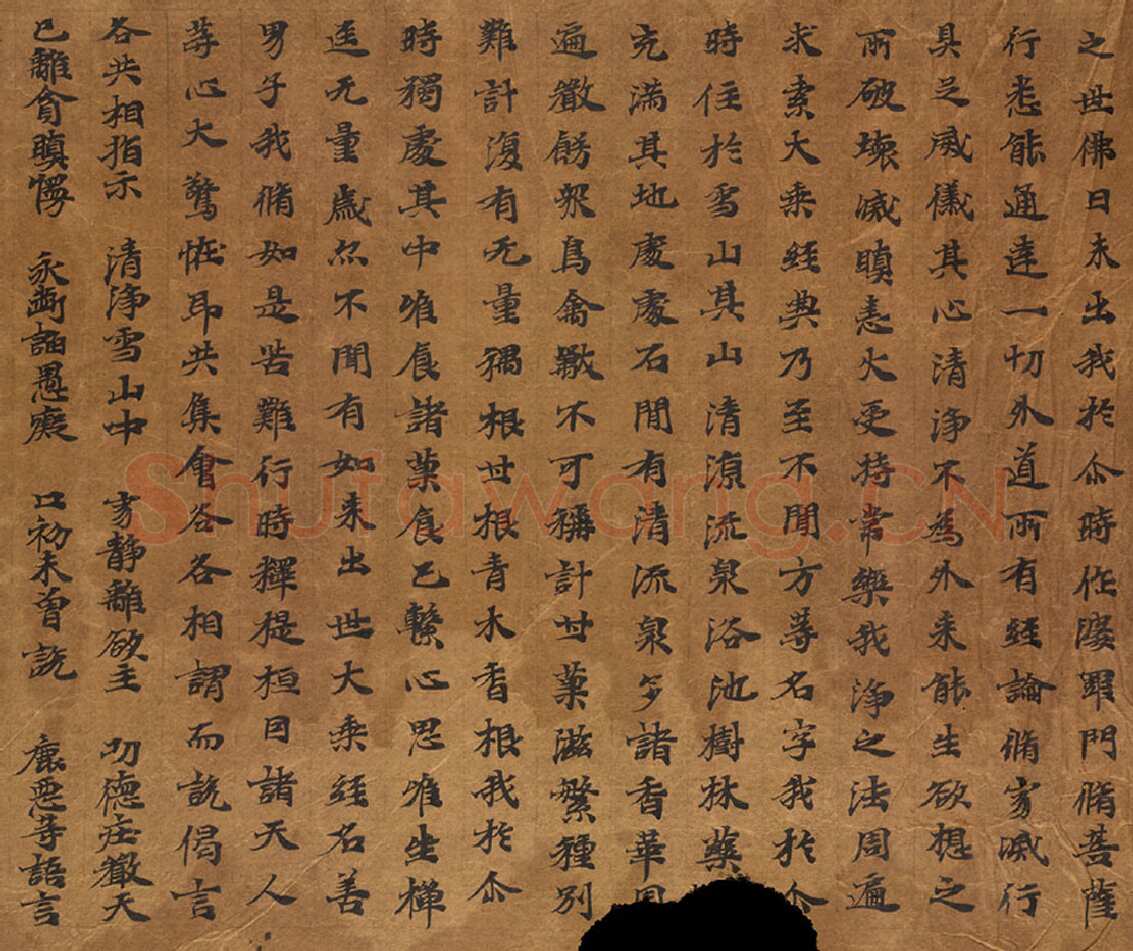 之世佛日未出我於尒時作婆羅門脩菩薩
行悉能通達一切外道所有經論脩寂滅行
具足威儀其心清淨不為外來能生欲想之
所破壞滅瞋恚火受持常樂我淨之法周遍
求索大乘經典乃至不聞方等名字我於尒
時住於雪山其山清涼流泉浴池樹林藥
充滿其地處處石間有清流泉多諸香華周
遍嚴飾眾鳥禽獸不可稱計甘菓滋繁種別
難計復有无量藕根甘根青木香根我於尒
時獨處其中唯食諸菓食已繫心思惟坐禪
逕无量歲亦不聞有如來出世大乘經名善
男子我脩如是苦難行時釋提桓因諸天人
等心大驚怪即共集會各各相謂而說偈言
各共相指示 清淨雪山中 寂靜離欲主 功德庄嚴天
已離貪瞋慢 永斷諂愚癡 口初未曾說 麁惡等語言
Shufawang.CN